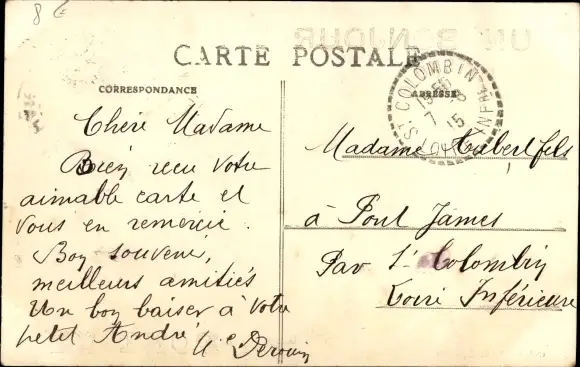 8 €
UN BONJOUR
CARTE POSTALE
CORRESPONDANCE
ADRESSE
ST COLOMBIN
7 - 8
15
LOIRE INFRE
Chère Madame
Bien recu votre
aimable carte et
vous en remercie.
Bon souvenir,
meilleurs amitiés
Un bon baiser à votre
petit André
Derouin
Madame Hubert fils
à Pont James
Par St Colombin
Loire Inférieure